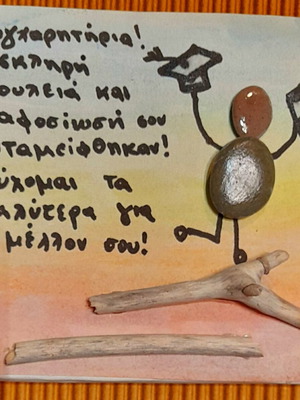 υγχαρητήρια!
σκληρή
ουλειά και
αφοσίωσή σου
νταμείφθηκαν!
ύχομαι τα
αλύτερα για
μέλλον σου!